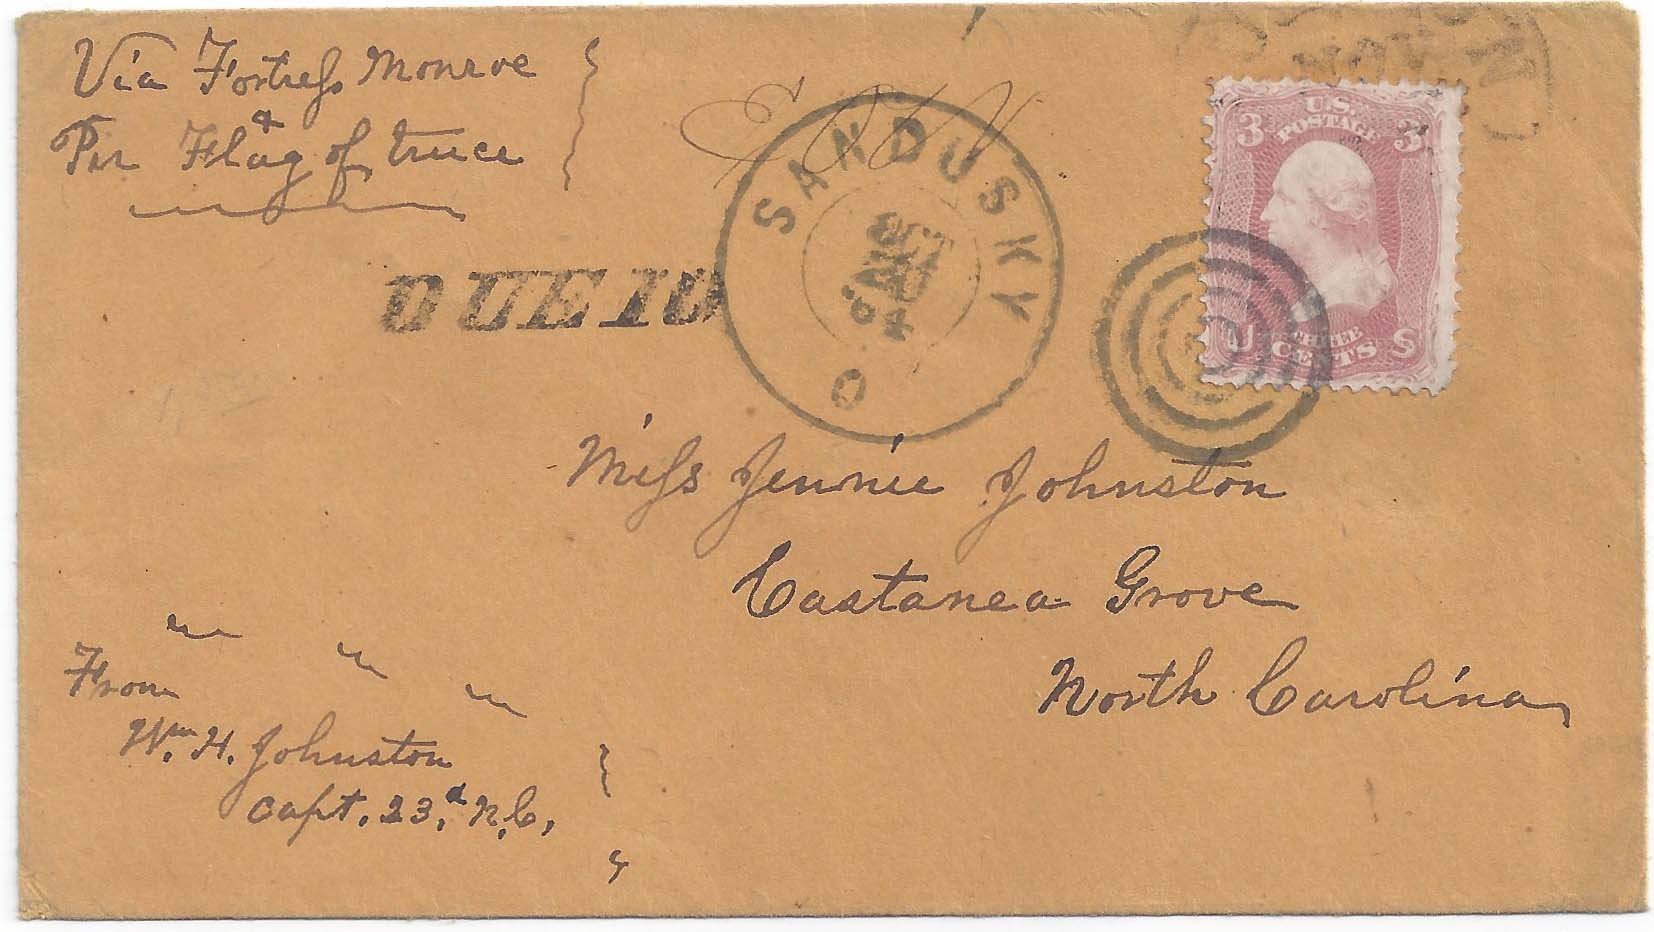 Via Fortress Monroe
&
Per Flag of truce
DUE 10
SANDUSKY
OCT
O
NOV
3 U.S. 3
POSTAGE
U THREE S
CENTS
Miss Jennie Johnston
Castanea Grove
North Carolina
From
Wm. H. Johnston
Capt. 23d N.C.